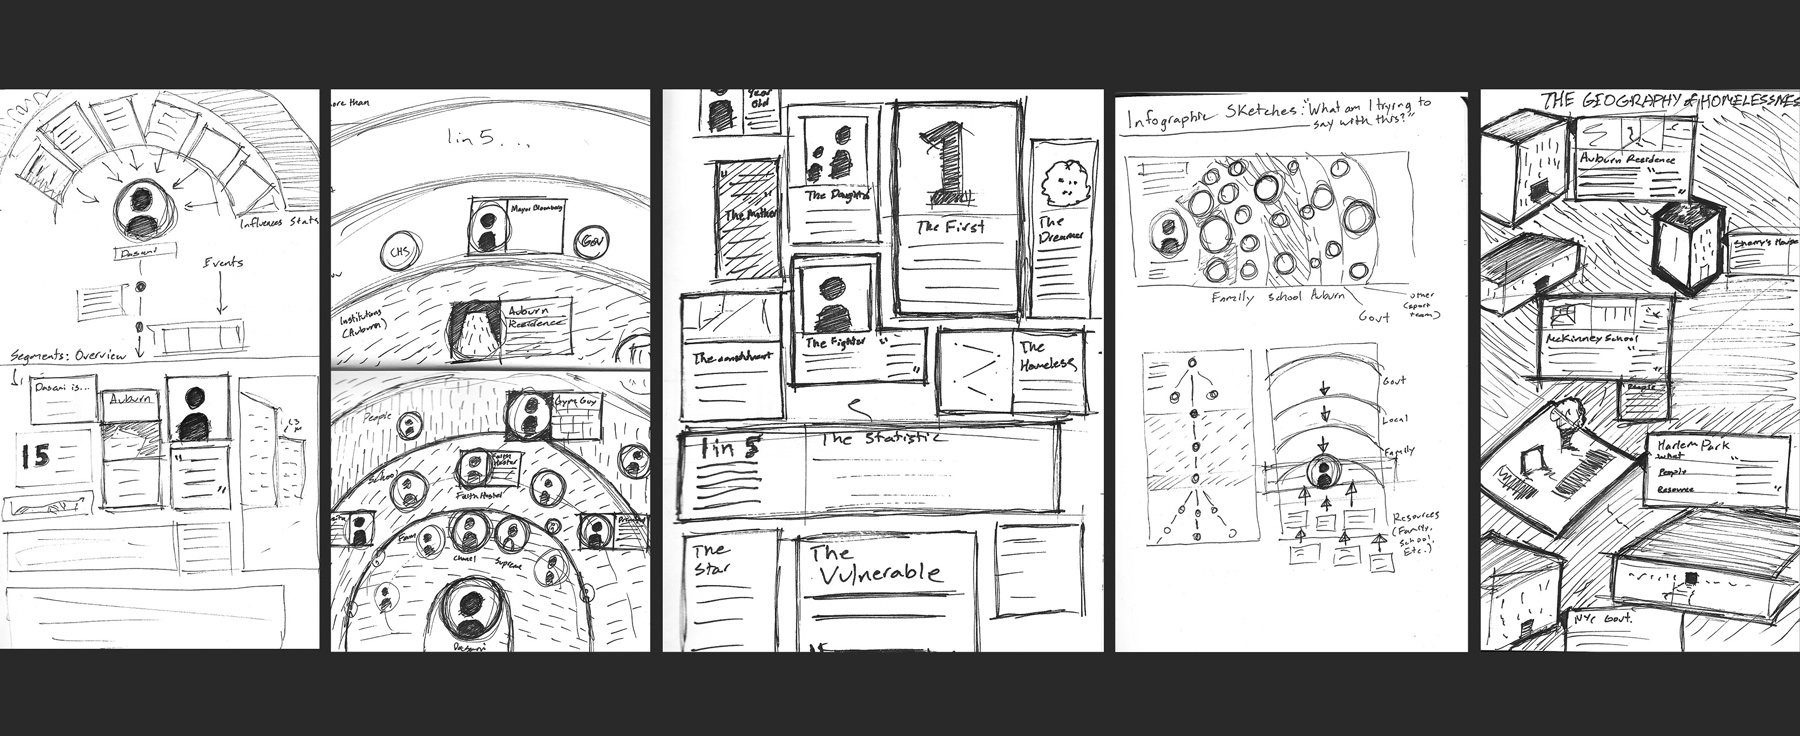 Influences Stats
Dasani
Events
Segments: Overview
Dasani is...
Auburn
15
more than
1 in 5...
Mayor Bloomberg
CHS
Gov
Institutions
(Auburn)
Auburn
Residence
People
Gym Guy
School
Faith Hester
Chanel
Supreme
Dasani
Year
Old
The Mother
The Daughter
1
The First
The
Dreamer
The Fighter
The
Homeless
1 in 5
The Statistic
The
Star
The
Vulnerable
Infographic Sketches: "What am I trying to
say with this?"
Family School Auburn
Govt
other
Govt
Local
Family
Resources
(Family,
School,
Etc.)
THE GEOGRAPHY of HOMELESSNES
Auburn Residence
Sherry's House
McKinney School
People
Harlem Park
What
People
Resource
NYC Govt.